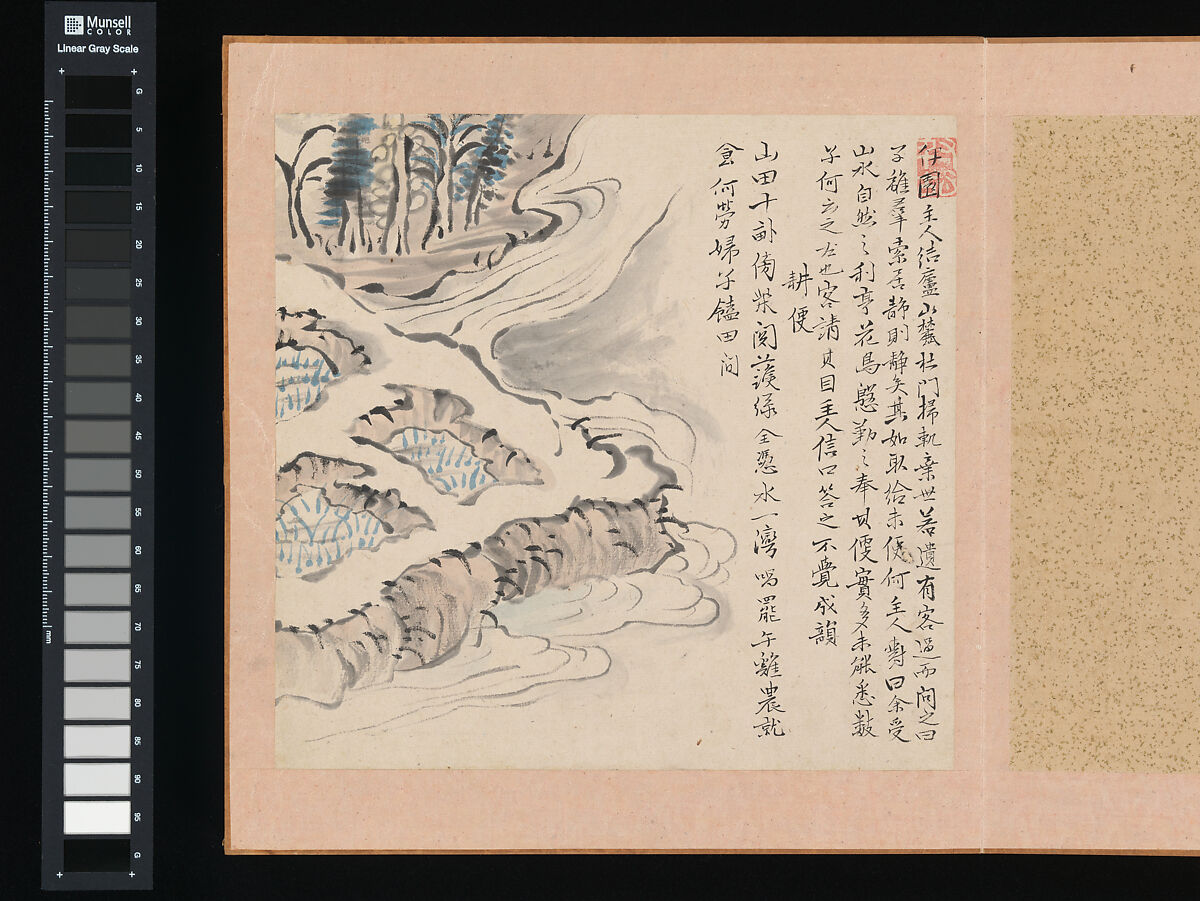 Munsell
COLOR
Linear Gray Scale
G
5
10
15
20
25
30
35
40
45
50
55
60
65
70
75
80
85
90
95
G
mm
伊園主人結廬山麓杜門掃軌棄世若遺有客過而問之曰
子離羣索居靜則靜矣其如取給未便何主人對曰余受
山水自然之利享花鳥慇勤之奉其便實多未能悉數
子何云之左也客請其目主人信口答之不覺成韻
耕便
山田十畝傍柴関護綠全憑水一灣唱罷午雞農就
食何勞婦子饁田間